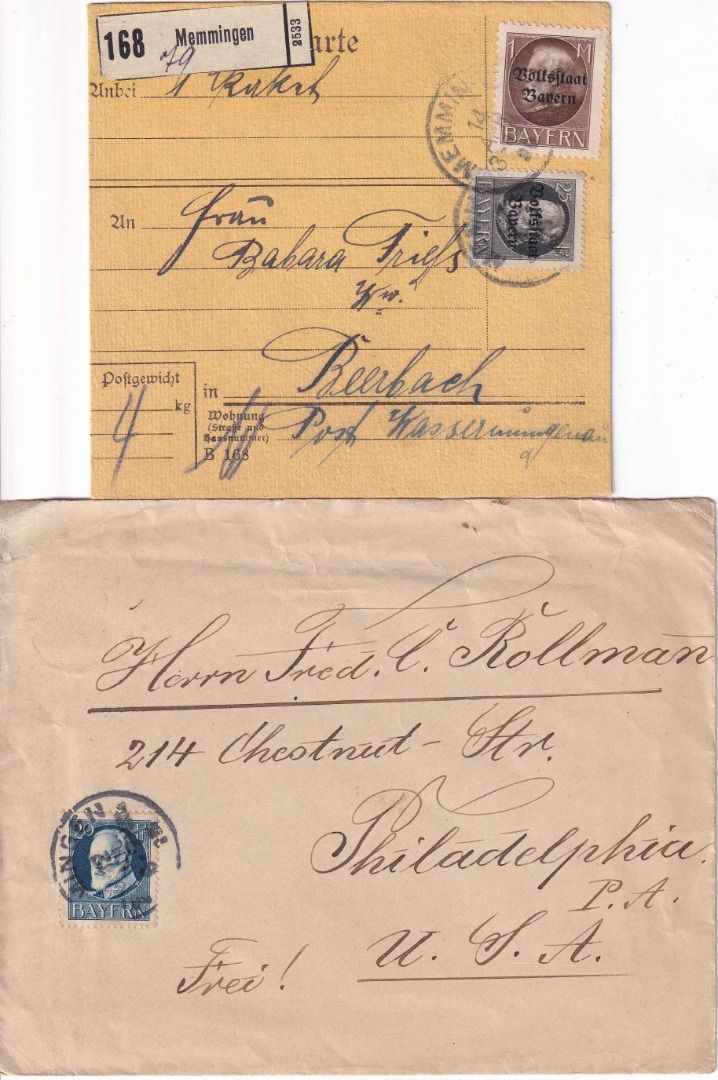 168 Memmingen 2533
79
arte
1 M
Volksstaat
Bayern
BAYERN
Anbei
1 Paket
MEMMIN
14
25
Volksstaat
Bayern
BAYERN
An
Frau
Babara Friess
Ww.
Postgewicht
kg
4
in
Beerbach
Wohnung
(Straße und
Hausnummer)
Post Wassermungenau
B 168
Herrn Fred. C. Rollman
214 Chestnut-Str.
Philadelphia.
P. A.
U. S. A.
20 Pf
BAYERN
Frei!